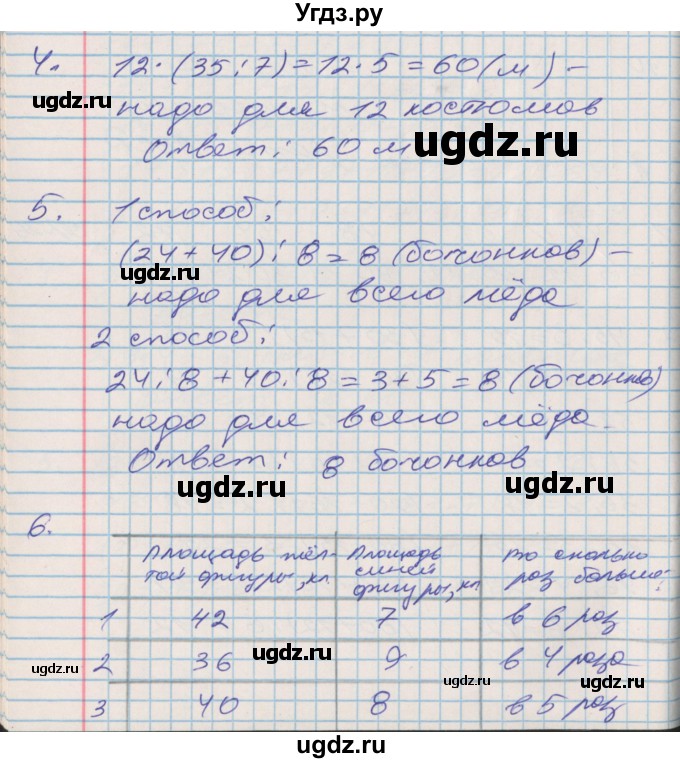 Угдз.ру
4. 12·(35:7)=12·5=60(м)-
надо для 12 костюмов
Ответ: 60 м
5. 1 способ:
(24+40):8=8 (бочонков)-
надо для всего мёда
2 способ:
24:8+40:8=3+5=8 (бочонков)
надо для всего мёда.
Ответ: 8 бочонков
6.
Площадь жёл- Площадь Во сколько
той фигуры, кл. синей раз больше?
фигуры, кл
1 42 7 в 6 раз
2 36 9 в 4 раза
3 40 8 в 5 раз
ugdz.ru
ugdz.ru
ugdz.ru
ugdz.ru
ugdz.ru
ugdz.ru
ugdz.ru
ugdz.ru
ugdz.ru
ugdz.ru
ugdz.ru